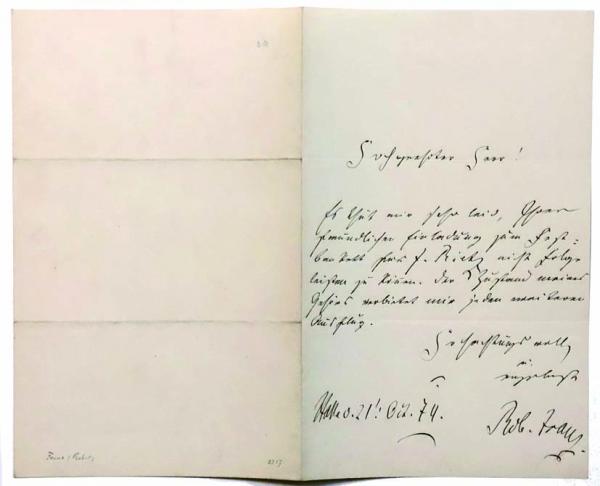 Hochgeehrter Herr!
Es thut mir sehr leid, Ihrer
freundlichen Einladung zum Fest-
bankett für J. Rietz nicht Folge
leisten zu können. Der Zustand meines
Gehörs verbietet mir jeden weiteren
Ausflug.
Hochachtungsvoll
u.
ergebenst
Halle d. 21t. Oct. 74.
Rob. Franz.
Franz (Robert)